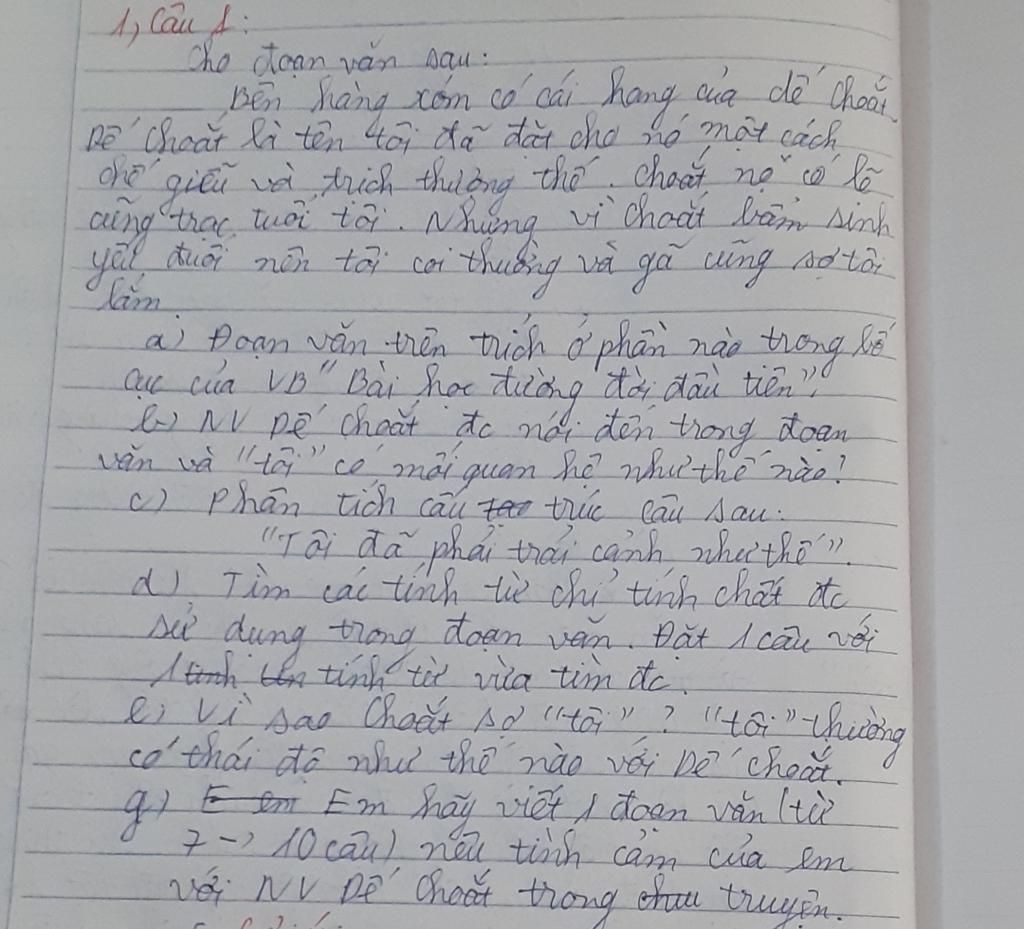 1, Câu 1:
Cho đoạn văn sau:
Bên hàng xóm có cái hang của dế choắt.
Dế choắt là tên tôi đã đặt cho nó một cách
chế giễu và trịch thượng thế. Choắt nọ có lẽ
cũng trạc tuổi tôi. Nhưng vì choắt bẩm sinh
yếu đuối nên tôi coi thường và gã cũng sợ tôi
lắm
a) Đoạn văn trên trích ở phần nào trong bố
cục của VB "Bài học đường đời đầu tiên"?
b) NV Dế choắt đc nói đến trong đoạn
văn và "tôi" có mối quan hệ như thế nào?
c) Phân tích cấu tạo trúc câu sau:
"Tôi đã phải trải cảnh như thế".
d) Tìm các tính từ chỉ tính chất đc
sử dụng trong đoạn văn. Đặt 1 câu với
1 tính từ vừa tìm đc.
e) Vì sao Choắt sợ "tôi"? "tôi" thường
có thái độ như thế nào với Dế choắt.
g) Em hãy viết 1 đoạn văn (từ
7 -> 10 câu) nêu tình cảm của em
với NV Dế choắt trong truyện.